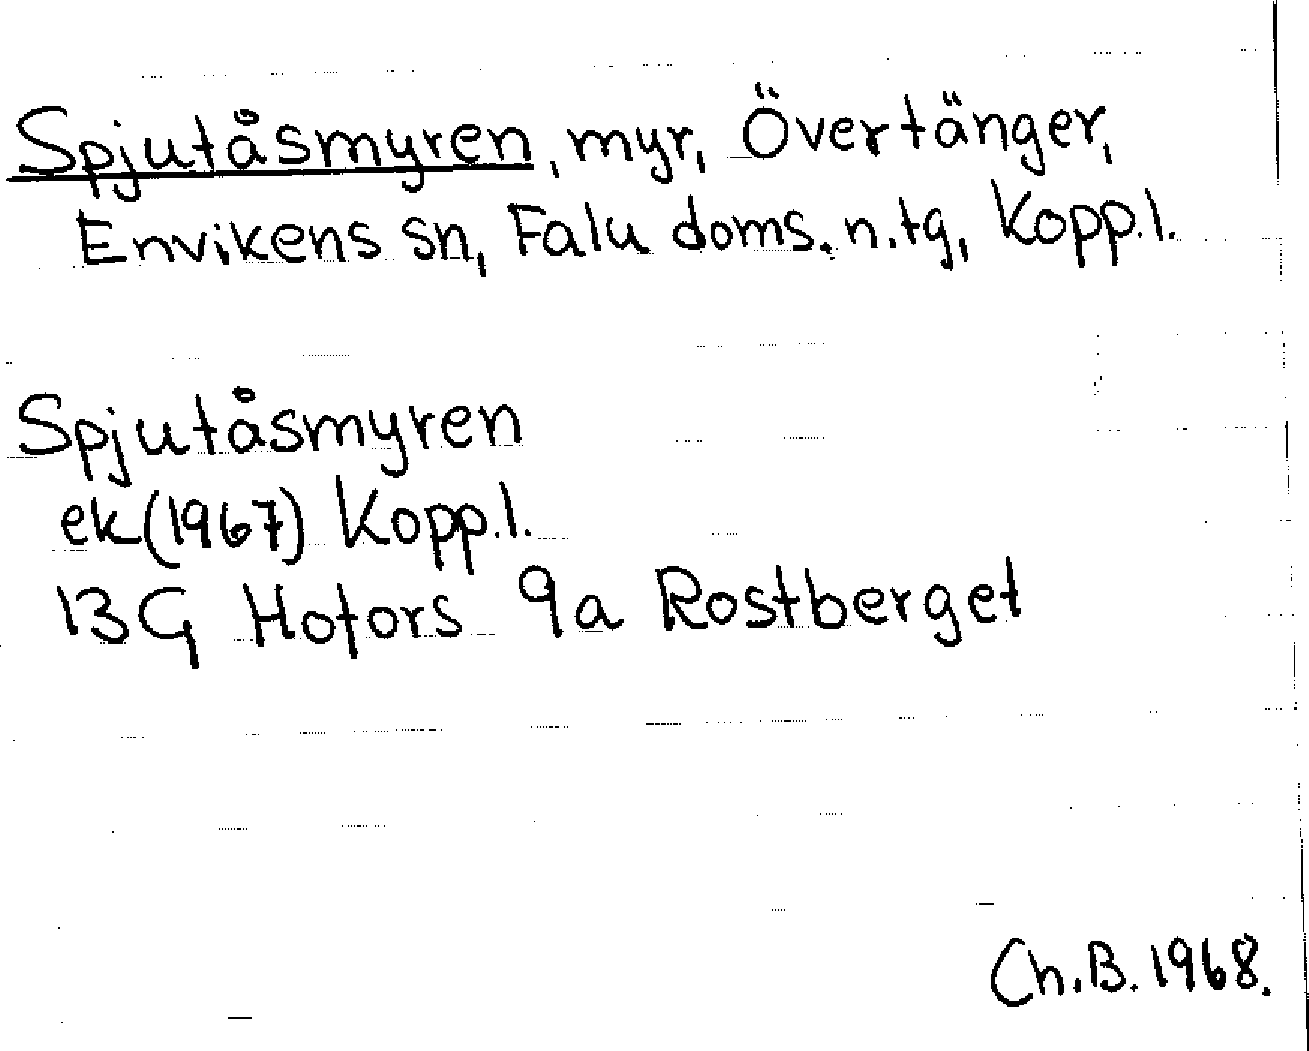 Spjutåsmyren, myr, Övertänger,
Envikens sn, Falu doms. n. tg, Kopp.l.
Spjutåsmyren
ek (1967) Kopp.l.
13G Hofors 9a Rostberget
Ch.B. 1968.